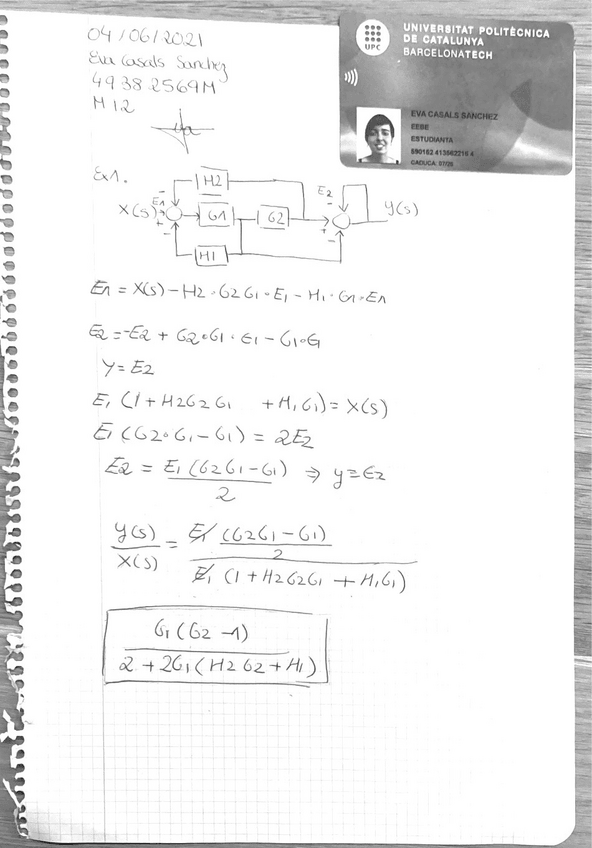 04/06/2021
Eva Casals Sanchez
49382569M
M12
UPC
UNIVERSITAT POLITÈCNICA
DE CATALUNYA
BARCELONATECH
EVA CASALS SANCHEZ
EEBE
ESTUDIANTA
CADUCA: 07/26
Ex1.
H2
E1
E2
X(s)
G1
G2
Y(s)
H1
E1 = X(s) - H2 · G2G1 · E1 - H1 · G1 · E1
E2 = -E2 + G2 · G1 · E1 - G1 · E1
Y = E2
E1 (1 + H2G2G1 + H1G1) = X(s)
E1 (G2 · G1 - G1) = 2E2
E2 = E1 (G2G1 - G1) / 2 ⇒ y = E2
Y(s) / X(s) = E1 (G2G1 - G1) / 2 / E1 (1 + H2G2G1 + H1G1)
G1 (G2 - 1)
2 + 2G1 (H2 G2 + H1)